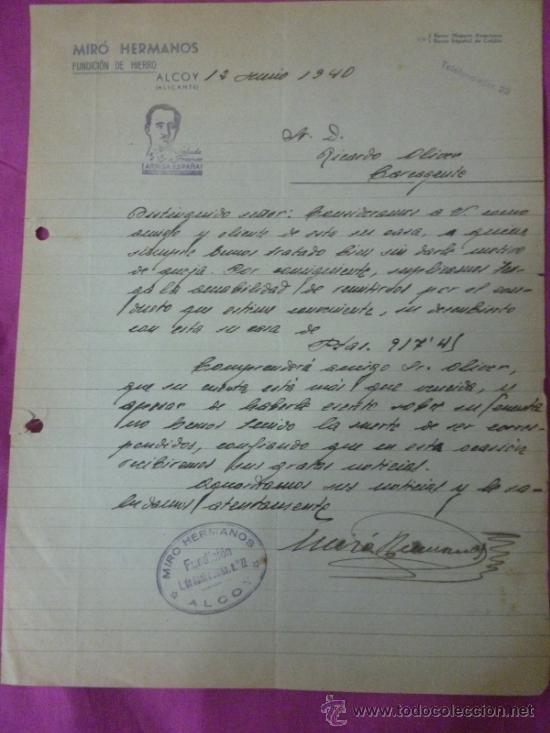 MIRÓ HERMANOS
FUNDICIÓN DE HIERRO
ALCOY
(ALICANTE)
Banco Hispano Americano
Banco Español de Crédito
12 Junio 1940
Saludo
a Franco
¡ARRIBA ESPAÑA!
S. D.
Ricardo Oliver
Carcagente
Distinguido señor: Consideramos a V. como
amigo y cliente de esta su casa, a quien
siempre hemos tratado bien sin darle motivo
de queja. Por consiguiente, suplicamos ten-
ga la amabilidad de remitirnos por el con-
ducto que estime conveniente, su descubierto
con esta su casa de
Ptas. 917'45
Comprenderá amigo Sr. Oliver,
que su cuenta está más que vencida, y
apesar de haberle escrito sobre su cuenta
no hemos tenido la suerte de ser corres-
pondidos, confiando que en esta ocasión
recibiremos sus gratas noticias.
Aguardamos sus noticias y le sa-
ludamos atentamente
Miró Hermanos
MIRO HERMANOS
Fundición
ALCOY
www.todocoleccion.net
http://www.todocoleccion.net